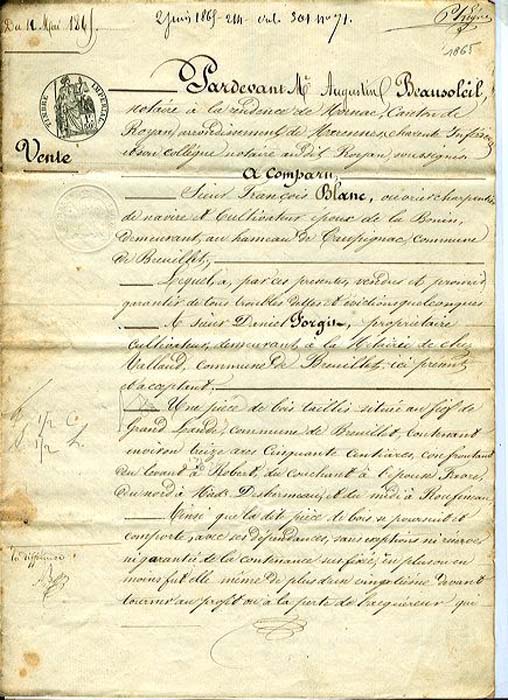 Du 12 Mai 1865
2 juin 1865 - 214 - vol. 301 nº 71.
1865
TIMBRE IMPERIAL
Pardevant Me Augustin Beausoleil,
notaire à la résidence de Mornac, Canton de
Royan, arrondissement de Marennes, charente Inférre
et son collègue notaire au dit Royan, soussignés
Vente
A comparu,
Sieur François Blanc, ouvrier charpentier
de navire et Cultivateur époux de la Bonin,
demeurant, au hameau de Taupignac, commune
de Breuillet,
Lequel a, par ces présentes, vendu et promis
garantir de tous troubles dettes et évictions quelconques
A sieur Daniel Forgit, propriétaire
Cultivateur, demeurant, à la Métairie de chez
Valland, commune de Breuillet, ici présent
et acceptant.
Une pièce de bois taillis située au fief de
Grand Lande, commune de Breuillet, contenant
environ treize ares Cinquante Centiares, confrontant
du levant à Robert, du couchant à l'épouse Favre,
du nord à Desbermeau, et du midi à
1/2 C
1/2 h.
Ainsi que la dite pièce de bois se poursuit et
comporte, avec ses dépendances, sans exceptions ni réserves
ni garantie de la contenance sus fixée, en plus ou en
moins fut elle même de plus d'un vingtième devant
tourner au profit ou à la perte de l'acquéreur qui